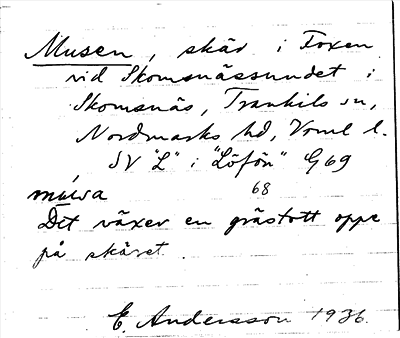 Musen, skär i Foxen
vid Skomsnässundet i
Skomsnäs, Trankils sn,
Nordmarks hd, Vrml l.
SV "L" i "Löfön" G69
68
Det växer en grästott oppe
på skäret.
E. Andersson 1936.